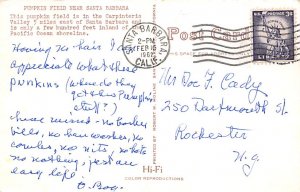 PUMPKIN FIELD NEAR SANTA BARBARA
This pumpkin field is in the Carpinteria
Valley 3 miles east of Santa Barbara and
is only a few hundred feet inland of the
Pacific Ocean shoreline.
Having no hair I do
appreciate what these
PUNKINS (where do they
get these Pumpkins
stuff?)
have missed - no Barber
bills, no
combs, no nits, no hats
no nothing, just an
easy life.
Post Card
SANTA BARBARA
2-PM
FEB 16
1962
CALIF.
3¢
LIBERTY
Mr Doc F. Cady
250 Dartmouth St
Rochester
N.Y.
Hi-Fi
COLOR REPRODUCTIONS